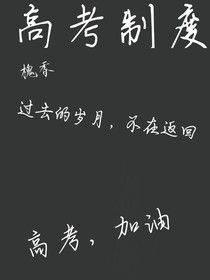 高考制度
槐香
过去的岁月，不在返回
高考，加油